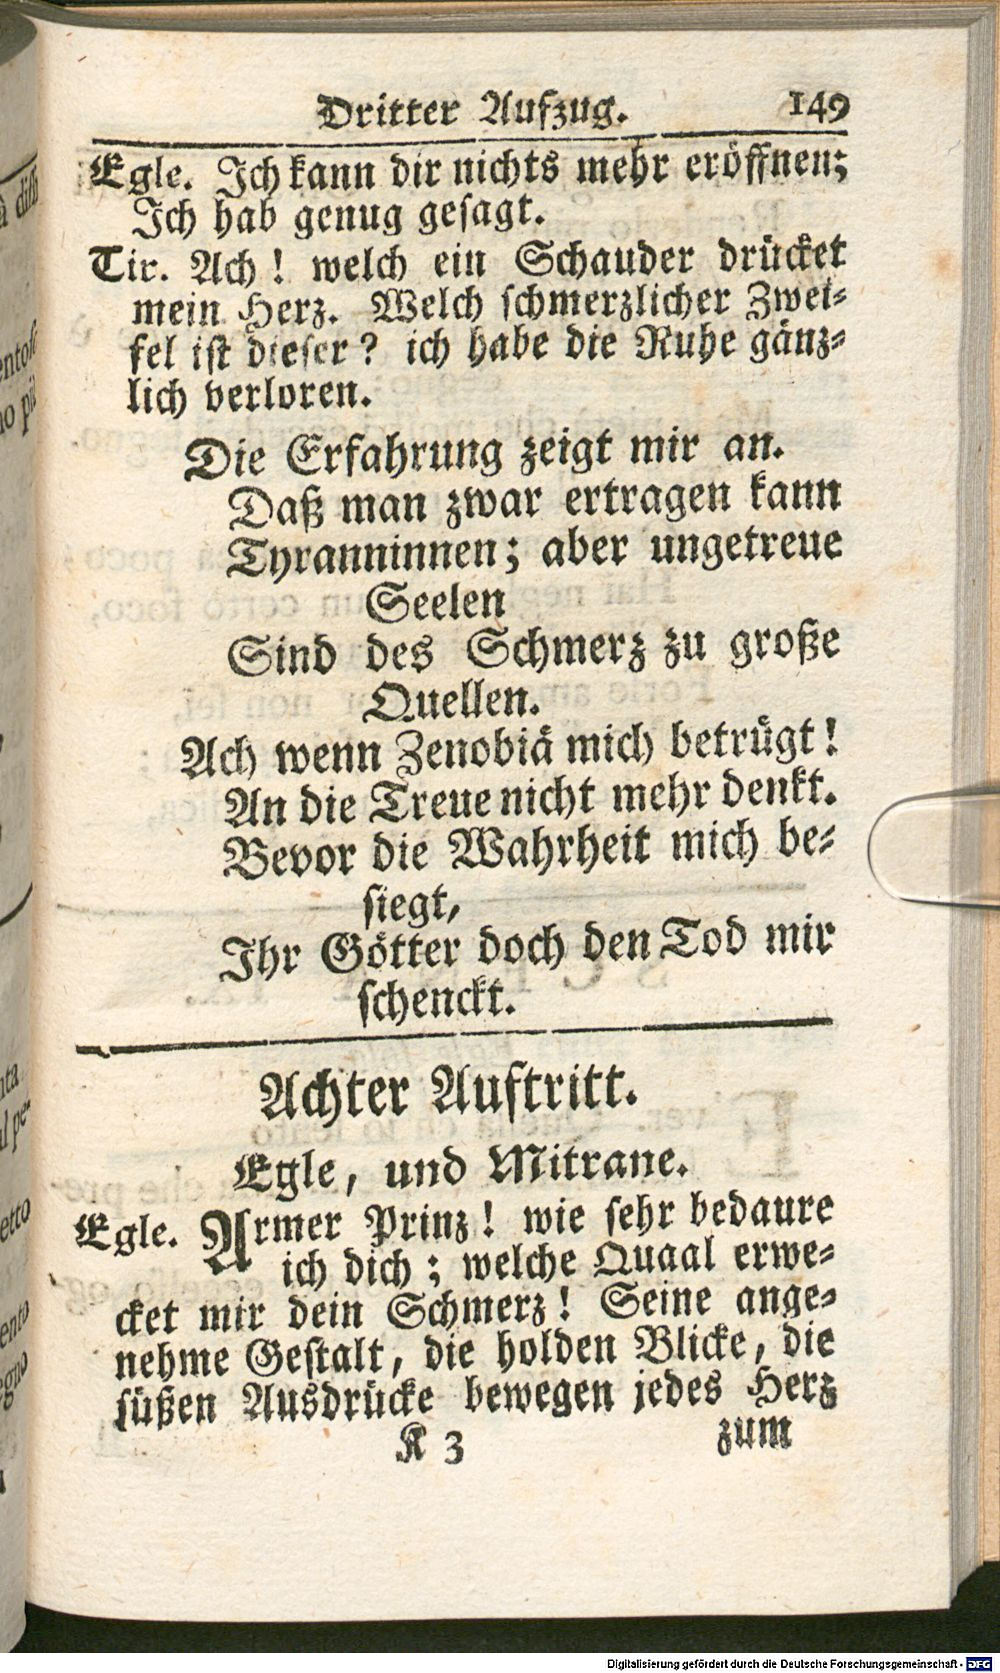 Dritter Aufzug. 149
Egle. Ich kann dir nichts mehr eröffnen;
Ich hab genug gesagt.
Tir. Ach! welch ein Schauder drücket
mein Herz. Welch schmerzlicher Zwei-
fel ist dieser? ich habe die Ruhe gänz-
lich verloren.
Die Erfahrung zeigt mir an.
Daß man zwar ertragen kann
Tyranninnen; aber ungetreue
Seelen
Sind des Schmerz zu große
Quellen.
Ach wenn Zenobiä mich betrügt!
An die Treue nicht mehr denkt.
Bevor die Wahrheit mich be-
siegt,
Ihr Götter doch den Tod mir
schenckt.
Achter Auftritt.
Egle, und Mitrane.
Egle. Armer Prinz! wie sehr bedaure
ich dich; welche Quaal erwe-
cket mir dein Schmerz! Seine ange-
nehme Gestalt, die holden Blicke, die
süßen Ausdrücke bewegen jedes Herz
K 3 zum
Digitalisierung gefördert durch die Deutsche Forschungsgemeinschaft - DFG